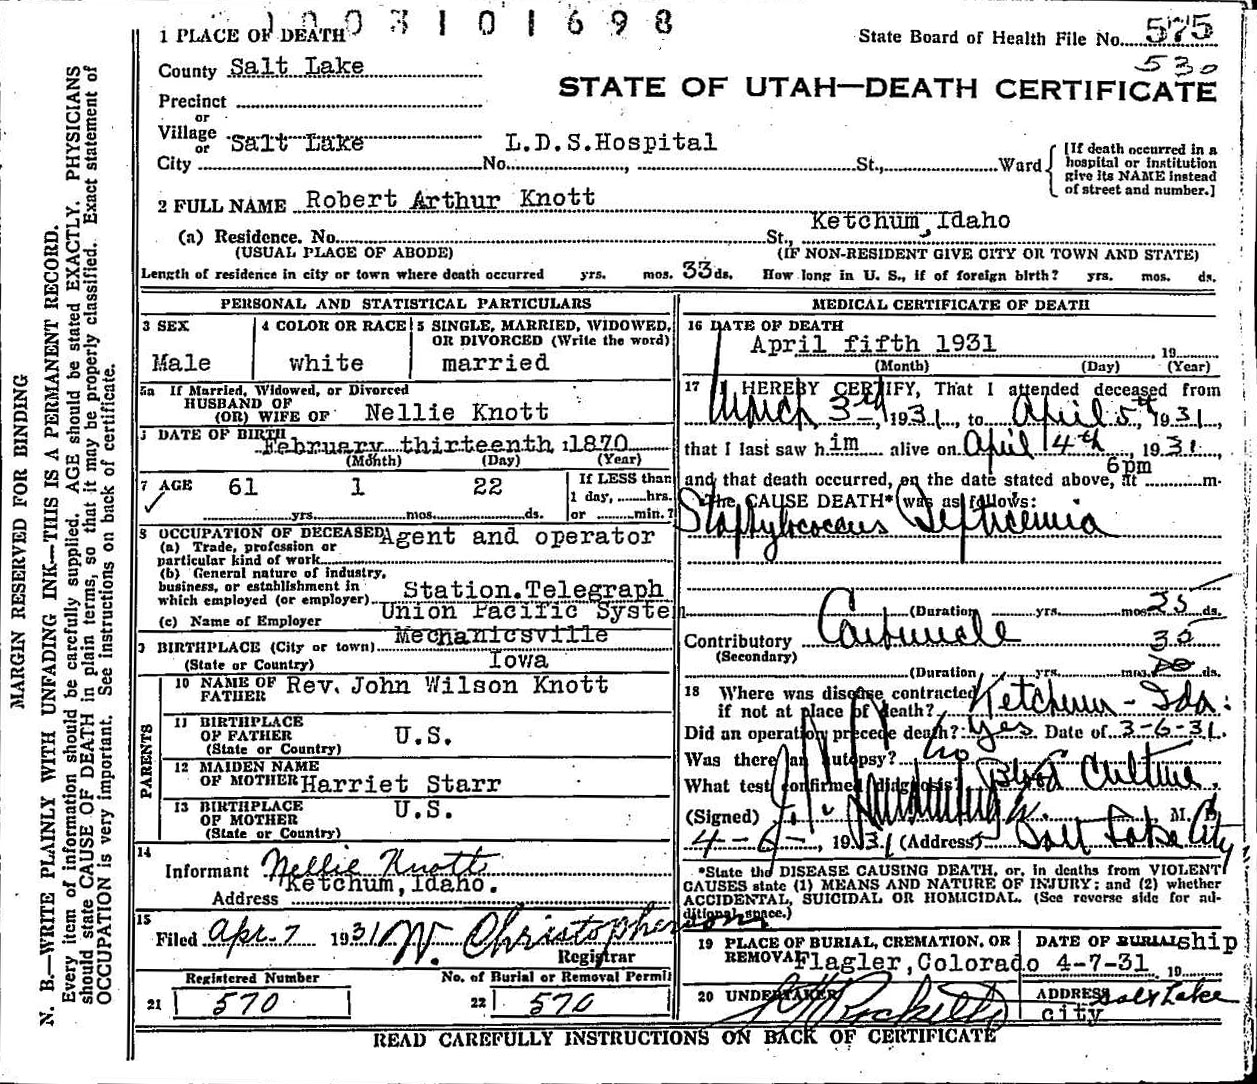 1003101698
1 PLACE OF DEATH
State Board of Health File No. 575
530
County Salt Lake
STATE OF UTAH—DEATH CERTIFICATE
Precinct
or
Village
or Salt Lake L.D.S.Hospital
City No. , St., Ward
[If death occurred in a
hospital or institution
give its NAME instead
of street and number.]
2 FULL NAME Robert Arthur Knott
Ketchum, Idaho
(a) Residence. No. St.,
(USUAL PLACE OF ABODE) (IF NON-RESIDENT GIVE CITY OR TOWN AND STATE)
Length of residence in city or town where death occurred yrs. mos. 33 ds. How long in U. S., if of foreign birth? yrs. mos. ds.
PERSONAL AND STATISTICAL PARTICULARS
3 SEX
Male
4 COLOR OR RACE
white
5 SINGLE, MARRIED, WIDOWED,
OR DIVORCED (Write the word)
married
5a If Married, Widowed, or Divorced
HUSBAND OF
(OR) WIFE OF Nellie Knott
DATE OF BIRTH
February thirteenth, 1870
(Month) (Day) (Year)
7 AGE 61 1 22
yrs. mos. ds.
If LESS than
1 day, hrs.
or min.?
8 OCCUPATION OF DECEASED Agent and operator
(a) Trade, profession or
particular kind of work
(b) General nature of industry,
business, or establishment in
which employed (or employer) Station.Telegraph
Union Pacific System
(c) Name of Employer
Mechanicsville
9 BIRTHPLACE (City or town)
(State or Country) Iowa
PARENTS
10 NAME OF
FATHER Rev. John Wilson Knott
11 BIRTHPLACE
OF FATHER U.S.
(State or Country)
12 MAIDEN NAME
OF MOTHER Harriet Starr
13 BIRTHPLACE
OF MOTHER U.S.
(State or Country)
14
Informant Nellie Knott
Ketchum, Idaho.
Address
15
Filed Apr. 7 1931 W. Christopherson
Registrar
Registered Number
21 570
No. of Burial or Removal Permit
22 570
MEDICAL CERTIFICATE OF DEATH
16 DATE OF DEATH
April fifth 1931 19
(Month) (Day) (Year)
17 I HEREBY CERTIFY, That I attended deceased from
March 3rd, 1931, to April 5th, 1931,
that I last saw him alive on April 4th, 1931
6pm
and that death occurred, on the date stated above, at m.
The CAUSE DEATH* was as follows:
Staphylococcus Septicemia
(Duration yrs. mos. 25 ds.
Contributory Carbuncle 30
(Secondary)
(Duration yrs. mos. ds.
18 Where was disease contracted
if not at place of death? Ketchum - Ida:
Did an operation precede death? yes Date of 3-6-31.
Was there an autopsy? no
What test confirmed diagnosis? Blood Culture.
(Signed) M. D.
4-6-, 1931 (Address) Salt Lake City
*State the DISEASE CAUSING DEATH, or, in deaths from VIOLENT
CAUSES state (1) MEANS AND NATURE OF INJURY; and (2) whether
ACCIDENTAL, SUICIDAL OR HOMICIDAL. (See reverse side for ad-
ditional space.)
19 PLACE OF BURIAL, CREMATION, OR
REMOVAL Flagler, Colorado
DATE OF BURIAL ship
4-7-31 19
20 UNDERTAKER
ADDRESS Salt Lake
city
READ CAREFULLY INSTRUCTIONS ON BACK OF CERTIFICATE
MARGIN RESERVED FOR BINDING
N. B.—WRITE PLAINLY WITH UNFADING INK—THIS IS A PERMANENT RECORD.
Every item of information should be carefully supplied. AGE should be stated EXACTLY. PHYSICIANS
should state CAUSE OF DEATH in plain terms, so that it may be properly classified. Exact statement of
OCCUPATION is very important. See instructions on back of certificate.